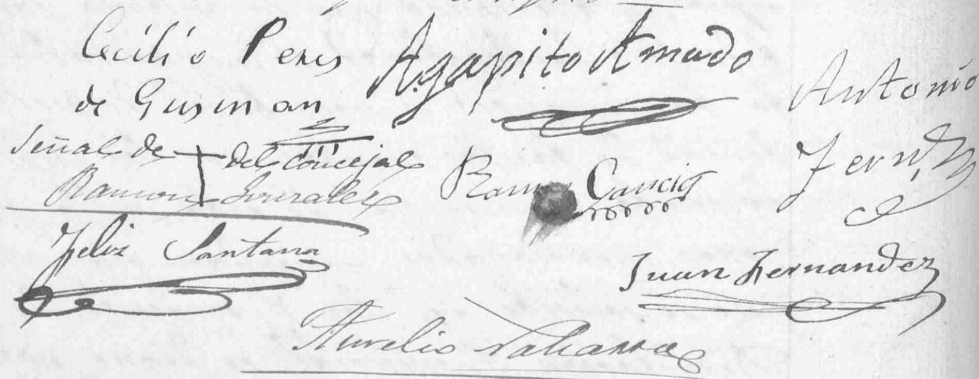 Cecilio Peres
de Gusman
Agapito Amado
Antonio
Fernz
Señal de + del Concejal
Ramon Gonzalez
Ramon Garcia
Feliz Santana
Juan Fernandez
Aurelio